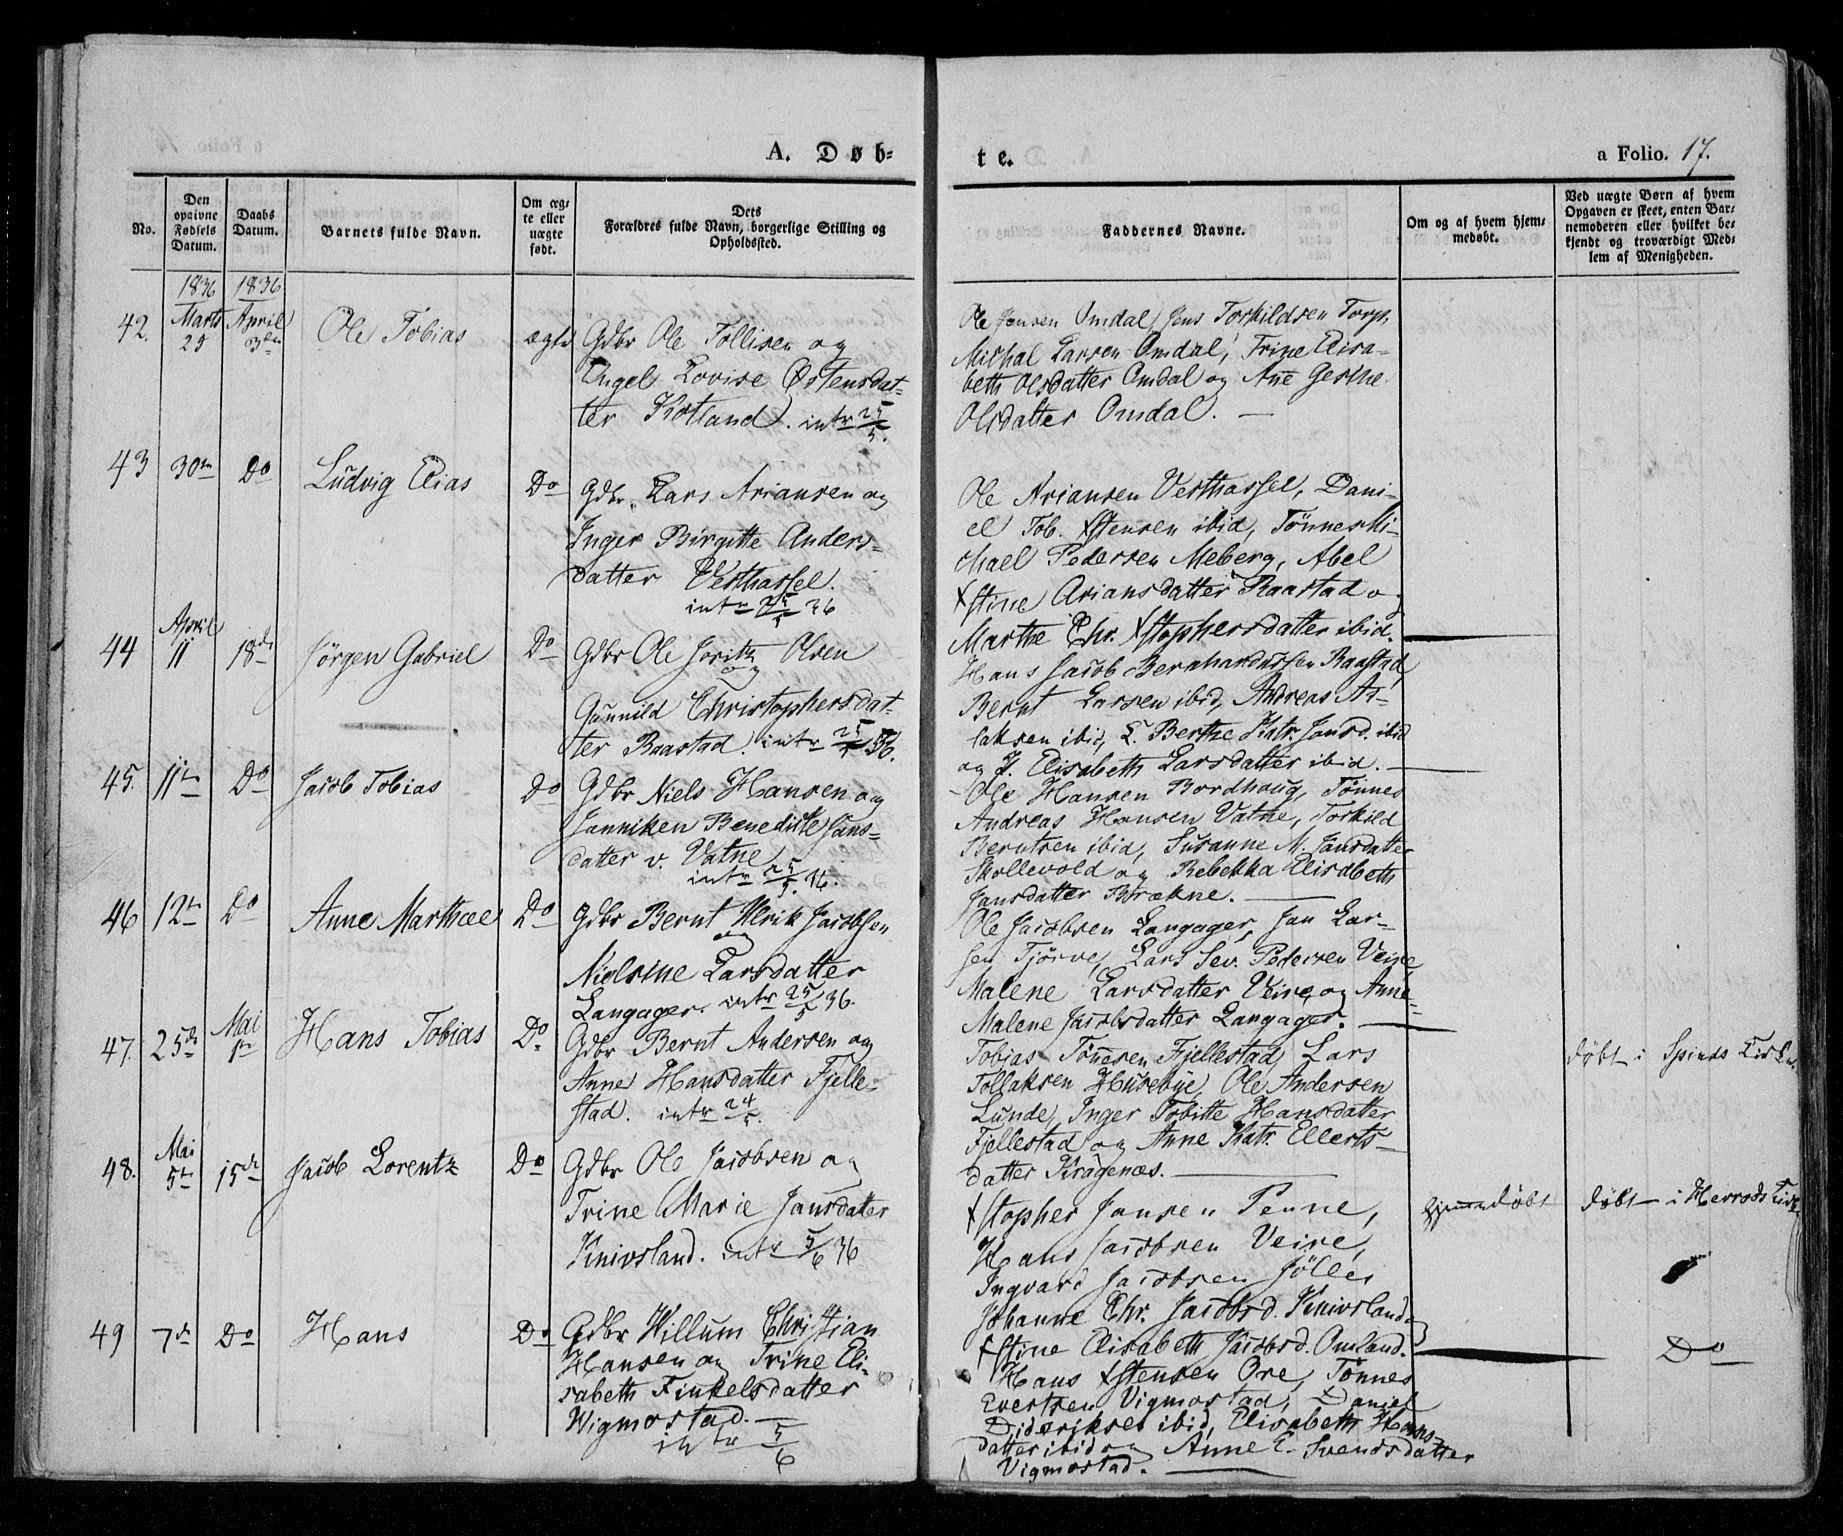 A. Døb-
te.
a Folio. 17.
No.
Den opgivne Fødsels Datum.
Daabs Datum.
Barnets fulde Navn.
Om ægte eller uægte født.
Dets Forældres fulde Navn, borgerlige Stilling og Opholdssted.
Faddernes Navne.
Om og af hvem hjemmedøbt.
Ved uægte Børn af hvem Opgaven er skeet, enten Barnemoderen eller hvilket bekjendt og troværdigt Medlem af Menigheden.
1836 1836
42. Marts 25 April 3die Ole Tobias ægte Gdbr Ole Tollisen og
Engel Lovise Østensdat-
ter Kotland. intr 25/5.
Ole Jensen Omdal, Jens Torkildsen Torp,
Michal Larsen Omdal, Trine Elisa-
beth Olsdatter Omdal og Ane Gesche
Olsdatter Omdal. —
43 30te Do Ludvig Elias Do Gdbr. Lars Ariansen og
Inger Birgitte Anders-
datter Vesthassel.
intr 25/5 36
Ole Ariansen Vesthassel, Dani-
el Tob. Xstensen ibid, Tønnes Mi-
chael Pedersen Meberg, Abel
Xstine Ariansdatter Raastad og
Marthe Chr. Xstophersdatter ibid.
44 April 11 18de Jørgen Gabriel Do Gdbr Ole Joritz Olsen
og
Gunnild Christophersdat-
ter Raastad. intr 25/5 36.
Hans Jacob Bernhardussen Raastad,
Bernt Larsen ibid, Andreas As-
laksen ibid, L. Berthe Katr. Jansd. ibid
og J. Elisabeth Larsdatter ibid. —
45. 11te Do Jacob Tobias Do Gdbr Niels Hansen og
Janniken Benedicte Jans-
datter v. Vatne
intr 25/5. 36.
Ole Hansen Bordhoug, Tönnes
Andreas Hansen Vatne, Torkild
Berntsen ibid, Susanne M. Jansdatter
Skollevold og Rebekka Elisabeth
Jansdatter Brækne. —
46 12te Do Anne Marthæe Do Gdbr Bernt Ulrik Jacobsen
og
Nielsine Larsdatter
Langager. intr 25/5 36.
Ole Jacobsen Langager, Jan Lar-
sen Tjörve, Lars Sev. Pedersen Veire,
Malene Larsdatter Veire og Anne
Malene Jacobsdatter Langager. —
47. 25de Mai 1te Hans Tobias Do Gdbr Bernt Andersen og
Anne Hansdatter Fjelle-
stad. intr 24/5.
Tobias Tönnesen Fjellestad, Lars
Tollaksen Husebye, Ole Andersen
Lunde, Inger Tobitte Hansdatter
Fjellestad og Anne Katr. Ellerts-
datter Kragenæs. —
døbt i Spinds Kirke.
48. Mai 5te 15de Jacob Lorentz Do Gdbr Ole Jacobsen og
Trine Marie Jansdatter
Knivsland. intr 5/6 36
Xstopher Jansen Penne,
Hans Jacobsen Veire,
Ingvard Jacobsen Jölle,
Johanne Chr. Jacobsd. Knivsland og
Xstine Elisabeth Jacobsd. Omland.
hjemmedøbt
døbt i Herrods Kirke
49 7de Do Hans Do Gdbr Willum Christian
Hansen og Trine Eli-
sabeth Finkelsdatter
Wigmostad. —
intr 5/6
Hans Xstensen Ore, Tönnes
Evertsen Vigmostad, Daniel
Dideriksen ibid, Elisabeth Hans-
datter ibid og Anne E. Svendsdatter
Vigmostad. —
Do